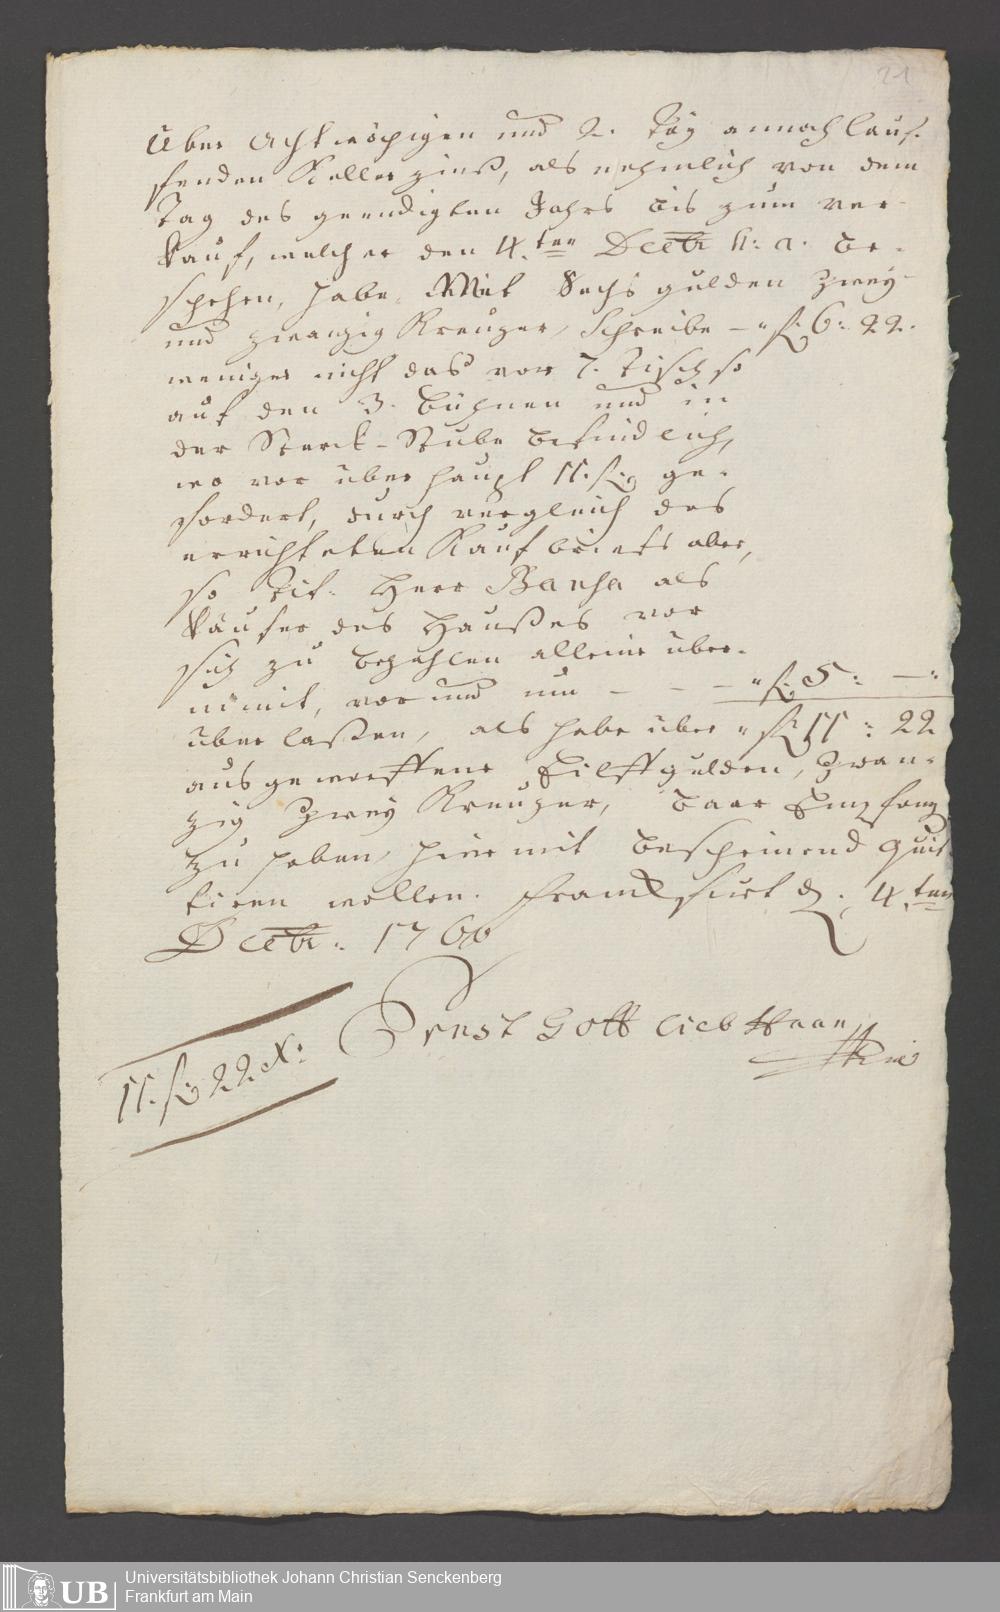 21
über Achtwöchigen und 2. Täg annoch lauf-
fenden Keller zinß, als nehmlich von dem
Tag des geendigten Jahrs bis zum ver-
kauf, welcher den 4.ten Decbr h: a. be-
schehen, habe. Mit Sechs gulden Zwey
und zwanzig Kreuzer, Schreibe - " f. 6: 22.
weniger nicht das vor 7. Tisch so
auf den 3. Bühnen und in
der Sterck-Stube befindlich,
wo vor überhaupt 11. f. ge-
fordert, durch vergleich des
errichteten Kauf briefs aber,
so Tit. Herr Bansa als
käufer des Haußes vor
sich zu bezahlen alleine über-
nimmt, vor und um - - - " f. 5: —:
überlaßen, als habe über " f. 11: 22
ausgeworffene Eilff gulden, Zwan-
zig Zwey Kreuzer, baar Empfang
zu haben hiermit bescheinend quit
tiren wollen. Franckfurt d. 4.ten
Decbr: 1766
Ernst Gottlieb Haan
11. f. 22 x:
UB
Universitätsbibliothek Johann Christian Senckenberg
Frankfurt am Main